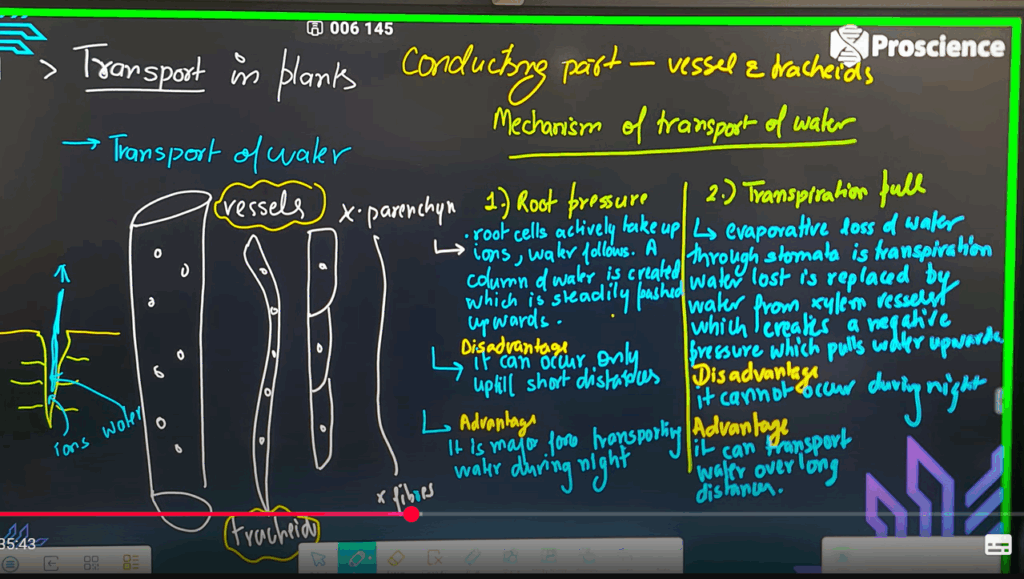 006 145
Proscience
> Transport in plants
Conducting part – vessel & tracheids
Mechanism of transport of water
→ Transport of water
vessels
x. parenchym
ions
water
x fibres
tracheids
1.) Root pressure
. root cells actively take up
ions, water follows. A
column of water is created
which is steadily pushed
upwards.
Disadvantage
it can occur only
uptill short distances
Advantage
It is major transporting
water during night
2.) Transpiration pull
↳ evaporative loss of water
through stomata is transpiration
water lost is replaced by
water from xylem vessels
which creates a negative
pressure which pulls water upwards
Disadvantage
it cannot occur during night
Advantage
it can transport
water over long
distances.
35:43